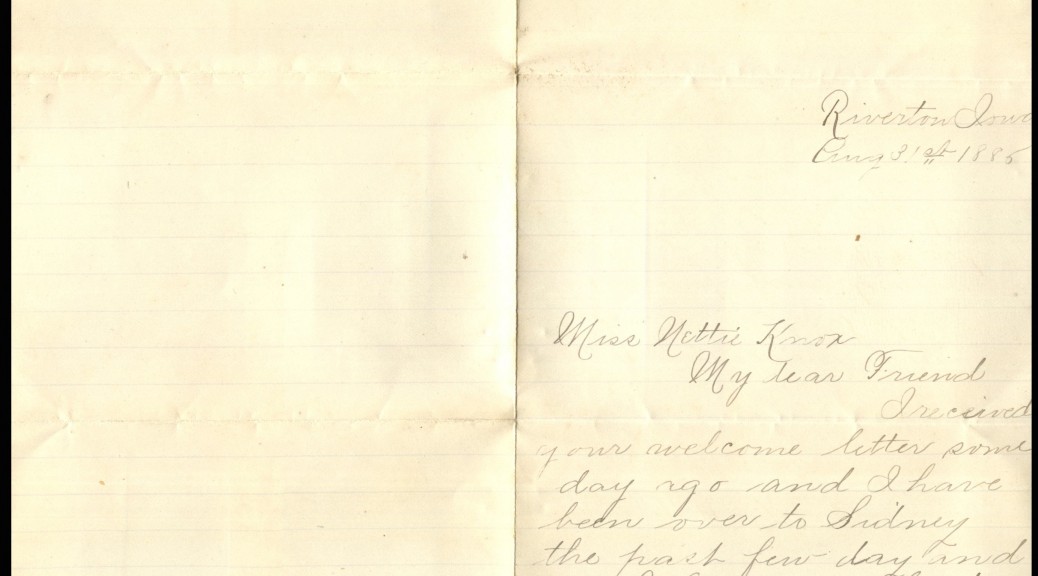 Riverton Iowa
Aug 31st 1885
Miss Nettie Knox
My dear Friend
I received
your welcome letter some
day ago and I have
been over to Sidney
the past few day and